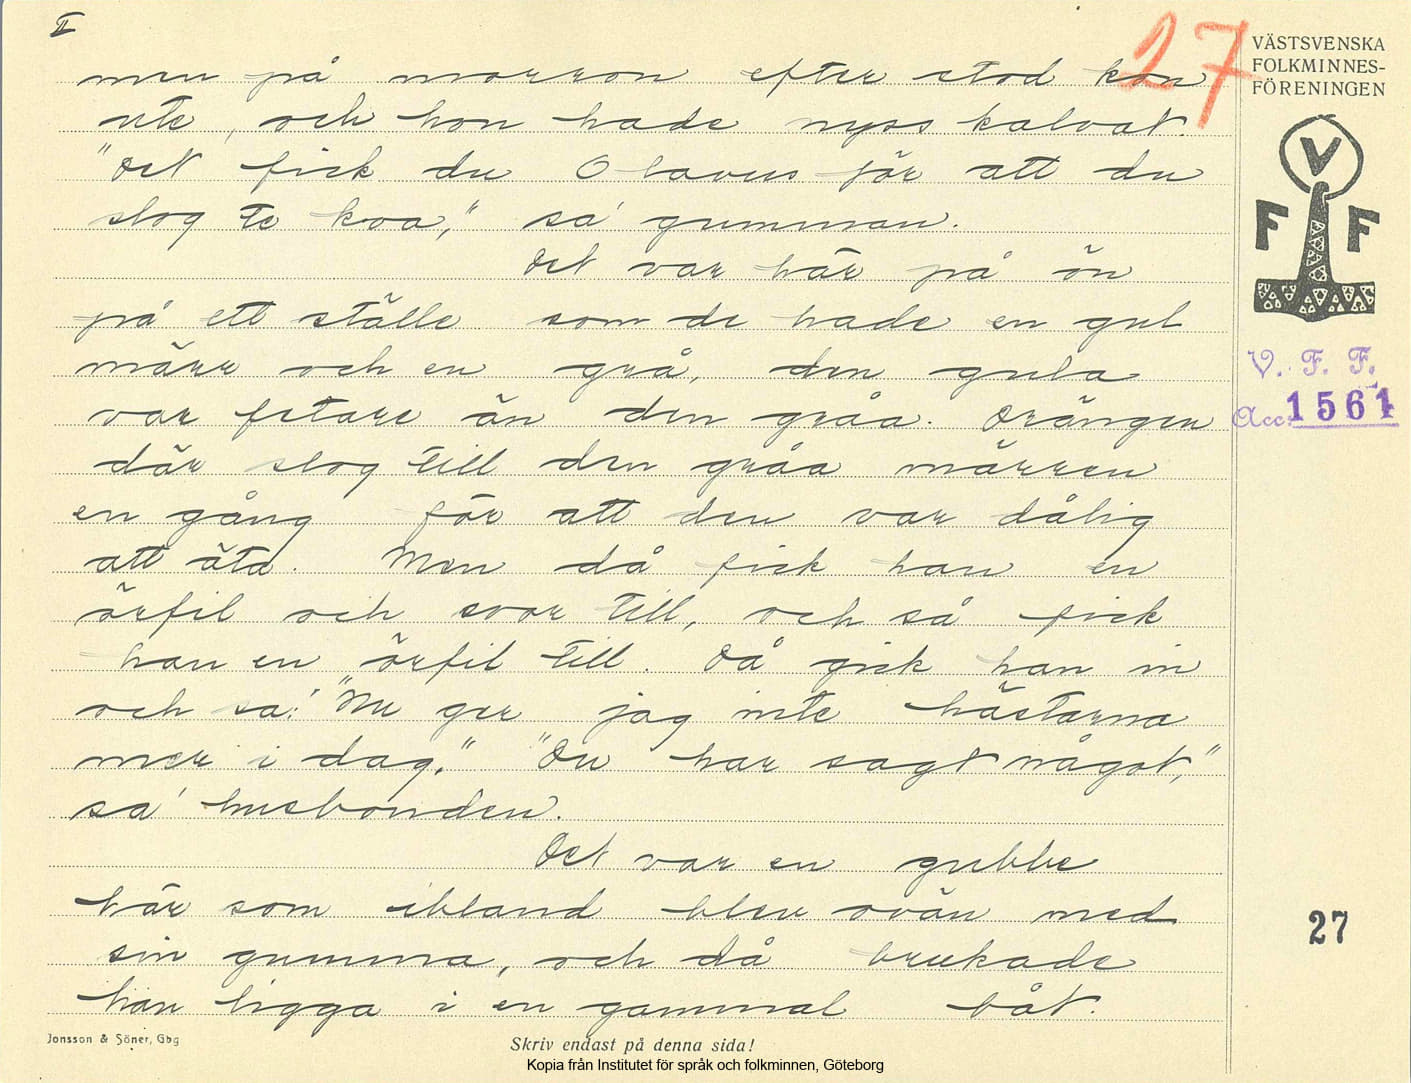 II
27
VÄSTSVENSKA
FOLKMINNES-
FÖRENINGEN
men på morron efter stod kon
ute, och hon hade nyss kalvat.
"Det fick du Olavus för att du
slog te koa," sa' gumman.
Det var här på ön
på ett ställe som de hade en gul
märr och en grå, den gula
var fetare än den gråa. Drängen
där slog till den gråa märren
en gång för att den var dålig
att äta. Men då fick han en
örfil och svor till, och så fick
han en örfil till. Då gick han in
och sa: "Nu ger jag inte hästarna
mer i dag." "Du har sagt något,"
sa' husbonden.
Det var en gubbe
här som ibland blev ovän med
sin gumma, och då brukade
han ligga i en gammal båt.
V
F F
V. F. F.
Acc. 1561
27
Jonsson & Söner, Gbg
Skriv endast på denna sida!
Kopia från Institutet för språk och folkminnen, Göteborg